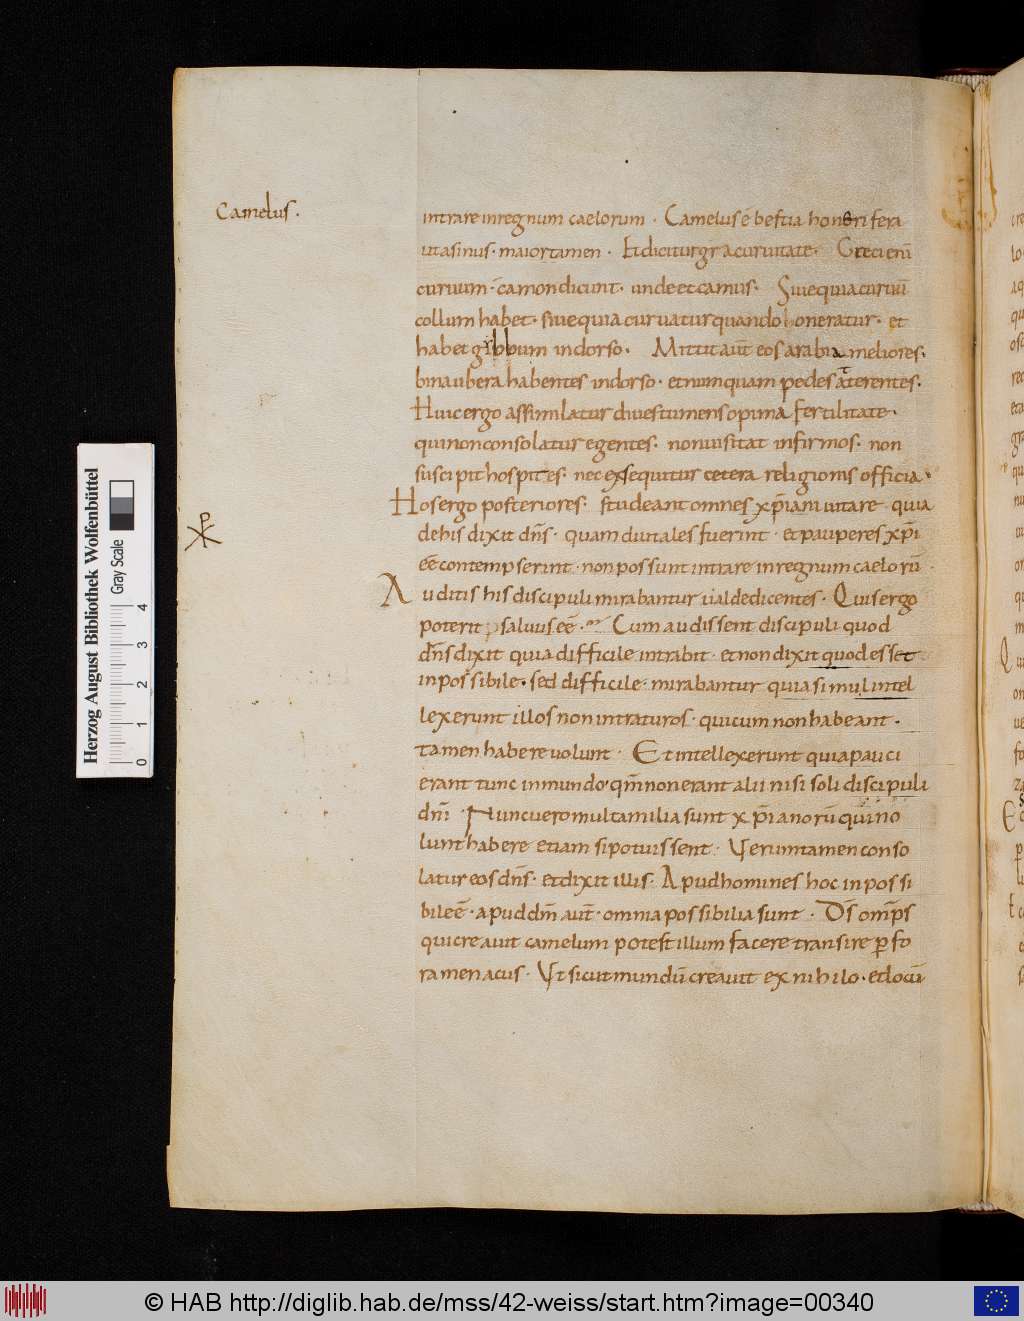 Camelus.
intrare inregnum caelorum · Camelus ē bestia honeri fera
utasinus · maior tamen · Et dicitur gr̄ acuruitate · Greci enī
curuum · camon dicunt · unde et camus · Siue quia curuū
collum habet · siue quia curuatur quando honeratur · et
habet gibbum indorso · Mittit aut̄ eos arabia meliores ·
bina ubera habentes indorso · et numquam pedes aterentes ·
Huic ergo assimilatur diues tumens opima fertilitate ·
qui non consolatur egentes · non uisitat infirmos · non
suscipit hospites · nec exsequitur cetera religionis officia ·
Hos ergo posteriores · studeant omnes xp̄iani uitare · quia
de his dixit dn̄s · quam diu tales fuerint · et pauperes xp̄i
eē contempserint · non possunt intrare inregnum caelorū ·
Auditis his discipuli mirabantur ualde dicentes · Quis ergo
poterit saluus eē · Cum audissent discipuli quod
dn̄s dixit quia difficile intrabit · et non dixit quod esset
inpossibile · sed difficile · mirabantur quia simul intel
lexerunt illos non intraturos · qui cum non habeant ·
tamen habere uolunt · Et intellexerunt quia pauci
erant tunc inmundo · qm̄ non erant alii nisi soli discipuli
dn̄i · Nunc uero multa milia sunt xp̄ianorū qui no
lunt habere etiam si potuissent · Verumtamen conso
latur eos dn̄s · et dixit illis · Apud homines hoc inpossi
bile ē · apud dm̄ aut̄ · omnia possibilia sunt · Ds̄ omp̄s
qui creauit camelum potest illum facere transire p̱ fo
ramen acus · Vt sicut mundū creauit ex nihilo · et locū
Herzog August Bibliothek Wolfenbüttel
Gray Scale
0 1 2 3 4
© HAB http://diglib.hab.de/mss/42-weiss/start.htm?image=00340